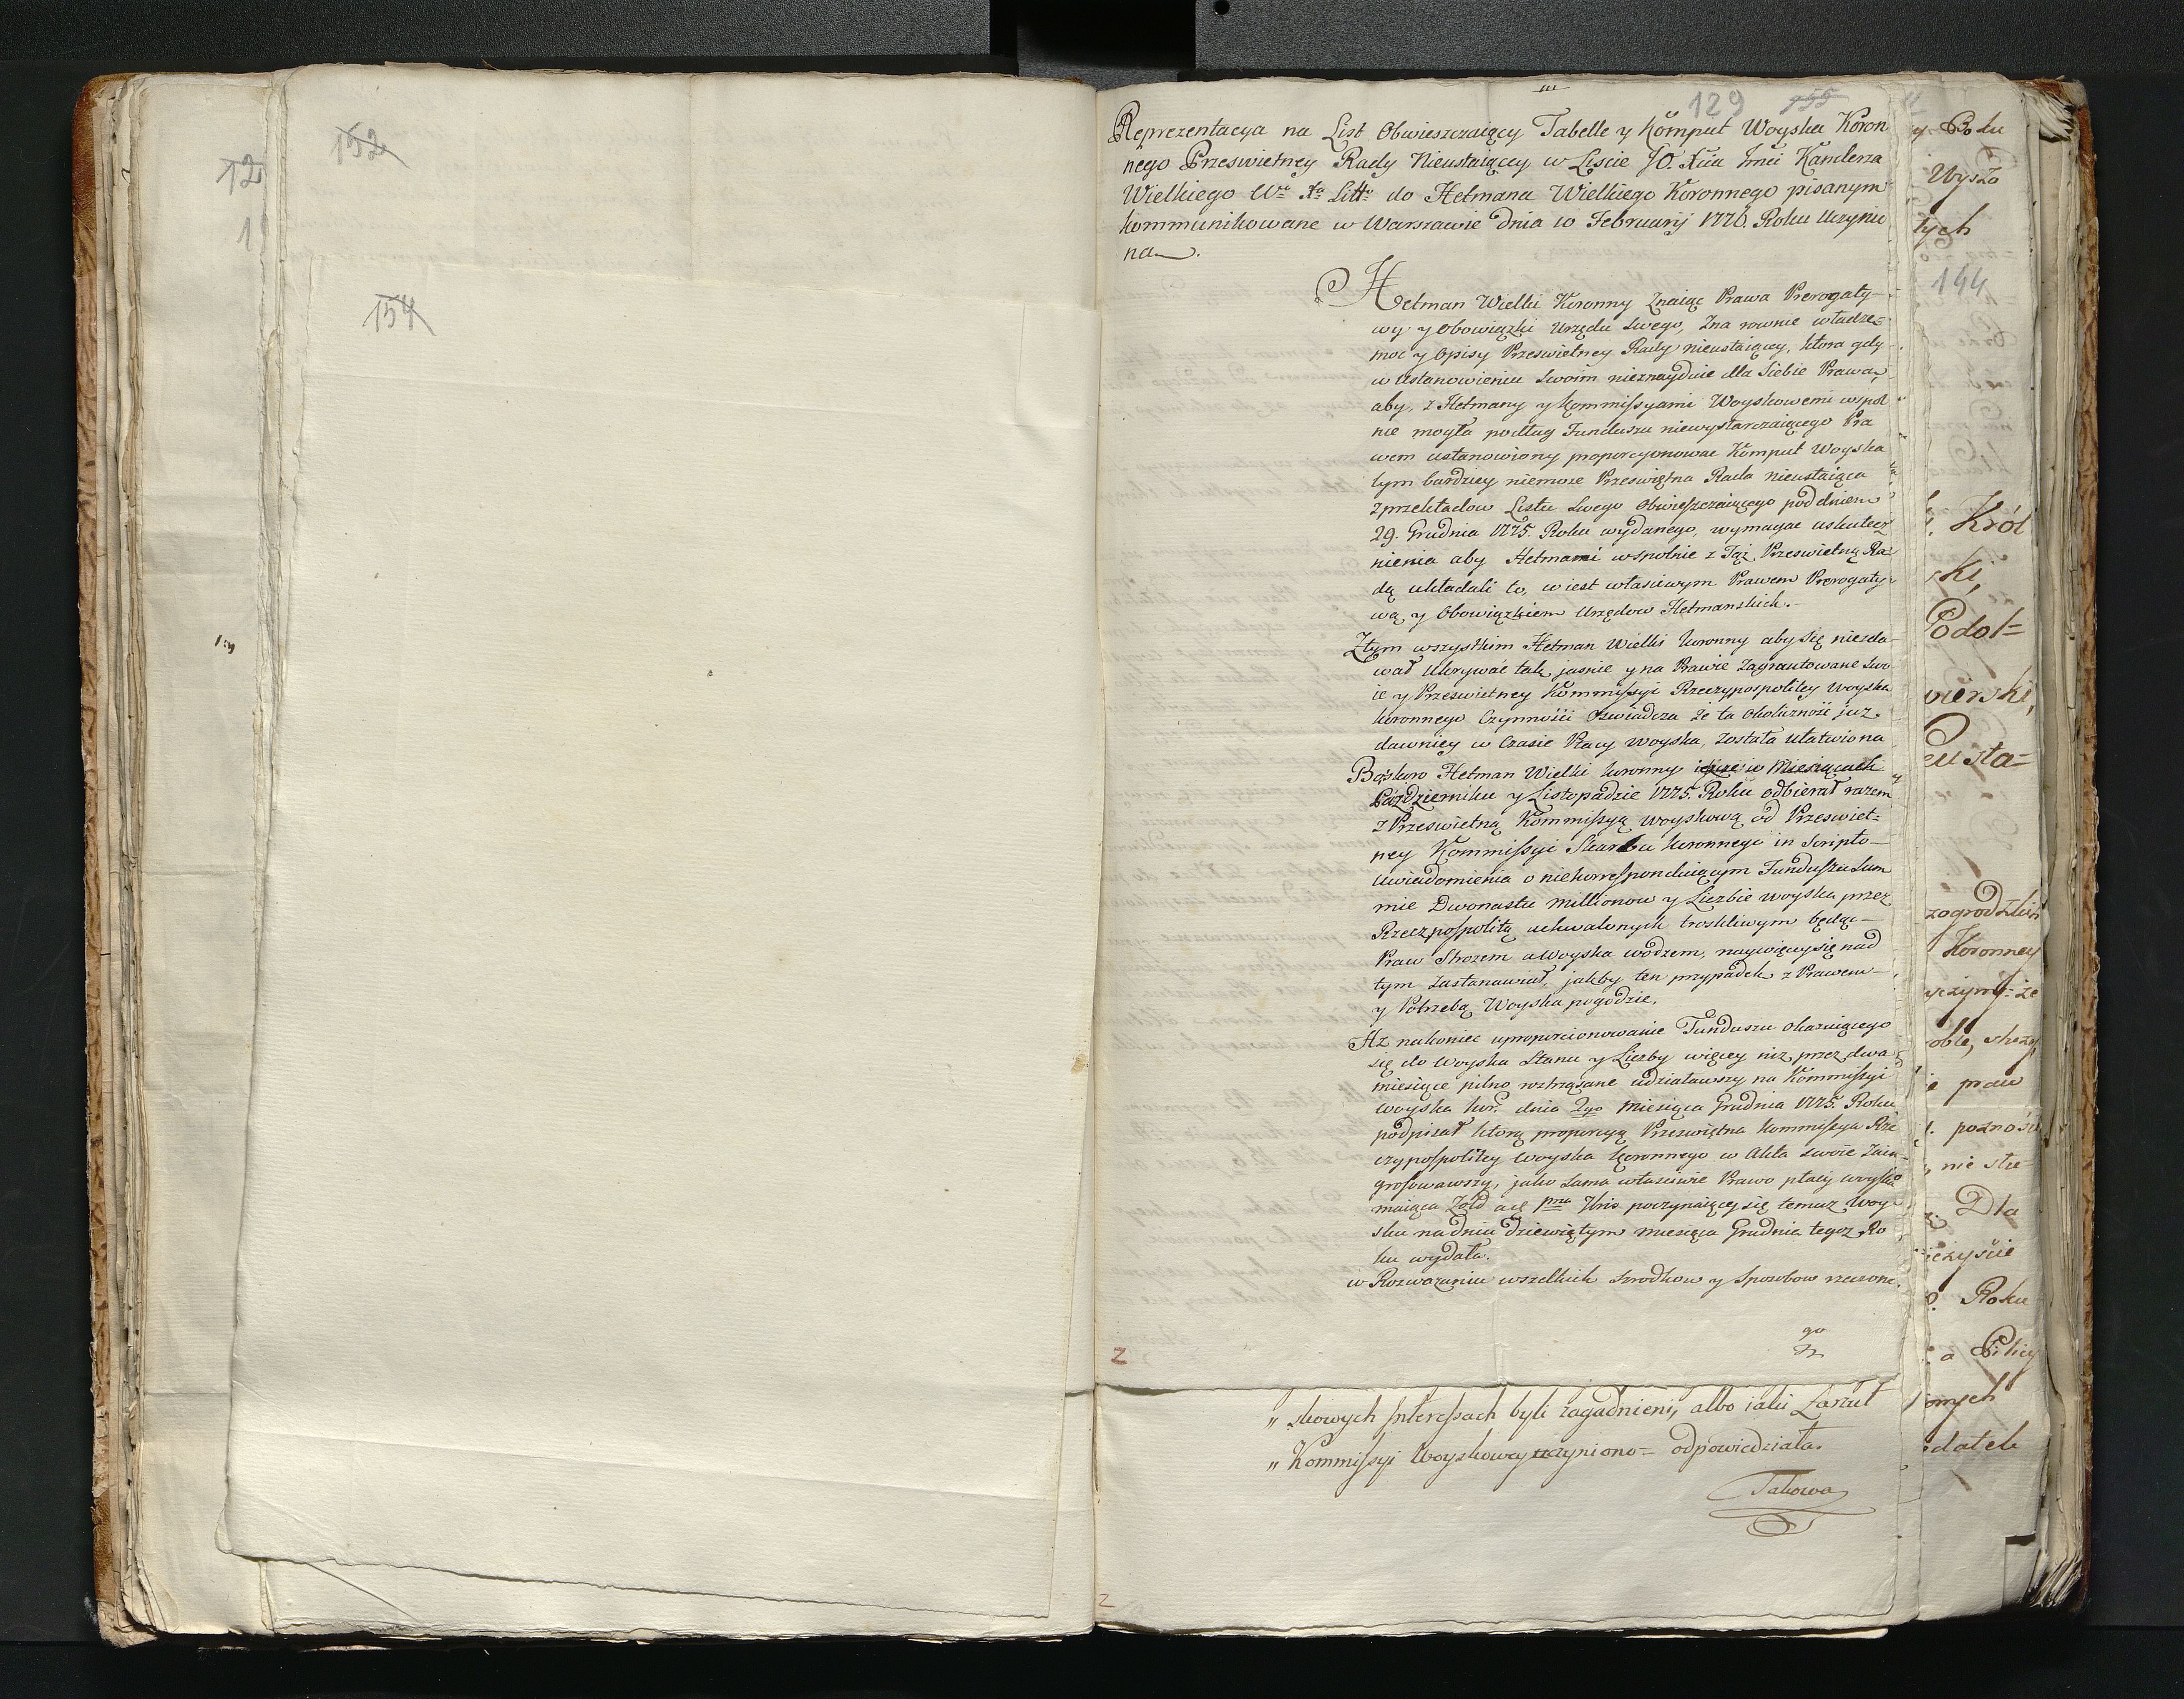 12
1
152
154
129 155
Reprezentacya na List Obwieszczaiący Tabelle y Komput Woyska Koron
nego Przeswietney Rady Nieustaiącey w Liscie JO. Xcia Jmci Kanclerza
Wielkiego Wo Xa Litto do Hetmana Wielkiego Koronnego pisanym
kommunikowane w Warszawie dnia 10 Februarij 1776. Roku Uczynio
na.
Hetman Wielki Koronny Znaiąc Prawa Prerogaty-
wy y Obowiązki Urzędu Swego, Zna rownie władze=
moc y Opisy Przeswietney Rady nieustaiącey, ktora gdy
w Ustanowieniu Swoim nieznayduie dla Siebie Prawa,
aby, z Hetmany y Kommissyami Woyskowemi wspol
nie mogła podług Funduszu niewystarczaiącego Pra
wem ustanowiony proporcyonowac Komput Woyska
tym bardziey niemoze Przeswiętna Rada nieustaiąca
z przekładow Listu Swego Obwieszczaiącego pod dniem
29. Grudnia 1775. Roku wydanego, wymagac uskutecz
nienia aby Hetmami wspolnie z Tąż Przeswietną Ra=
dą układali to, co iest własciwym Prawem Prerogaty-
wą y Obowiązkiem Urzędow Hetmanskich.-
Z tym wszystkim Hetman Wielki Koronny aby się niezda
wał Ukrywać tak jasnie y na Prawie Zagruntowane Swo
ie y Przeswietney Kommissyi Rzeczypospolitey Woyska
koronnego Czynnośći oswiadcza że ta okoliczność juz
dawniey w Czasie Pracy Woyska, została ułatwiona
Bo skoro Hetman Wielki koronny ieszcze w Miesiącach
Pażdzierniku y Listopadzie 1775. Roku odbierał razem
z Przeswietną Kommissyą Woyskową od Przeswiet=
ney Kommissyi Skarbu koronnego in Scripto-
Uwiadomienia o niekorrespondującym Funduszu Sum
mie Dwonastu Millionow y Liczbie woyska przez
Rzeczpospolitą uchwalonych troskliwym będąc-
Praw Strozem a Woyska wodzem, naywięcey się nad
tym zastanawiał, jakby ten przypadek z Prawem-
y Potrzebą Woyska pogodzic,
Az nakoniec uproporcionowanie Funduszu okazuiącego
się do Woyska Stanu y Liczby więcey niz przez dwa
miesiące pilno roztrząsane udziaławszy na Kommissyi
woyska kor. dnia 2go Miesiąca Grudnia 1775. Roku
podpisał ktorą proporcyą Przeswiętna Kommissya Rze
czypospolitey Woyska koronnego w Akta Swoie Zain-
grosowawszy, jako sama własciwie Prawo płacy woyska
maiąca Zołd a 1ma Xbris poczynaiącey się temuz Woy
sku na dniu dziewiątym miesiąca Grudnia tegoz Ro
ku wydała.
w Rozwazaniu wszelkich srodkow y Sposobow rzeczone.
go
2
„ skowych Interessach byli zagadnieni, albo iaki Zarzut
„ Kommissyi Woyskowey uczyniono= odpowiedziała.
Takowa
2
y Boku
Wyszo
tych
144
Król
ski,
Podol=
wierski,
eu sta=
zogrodzkich
Koronney
yczym że
oble, skezy
e praw
poznośc
, nie stu-
Dla
ieżyście
Roku
a Pilicy
omych
datek